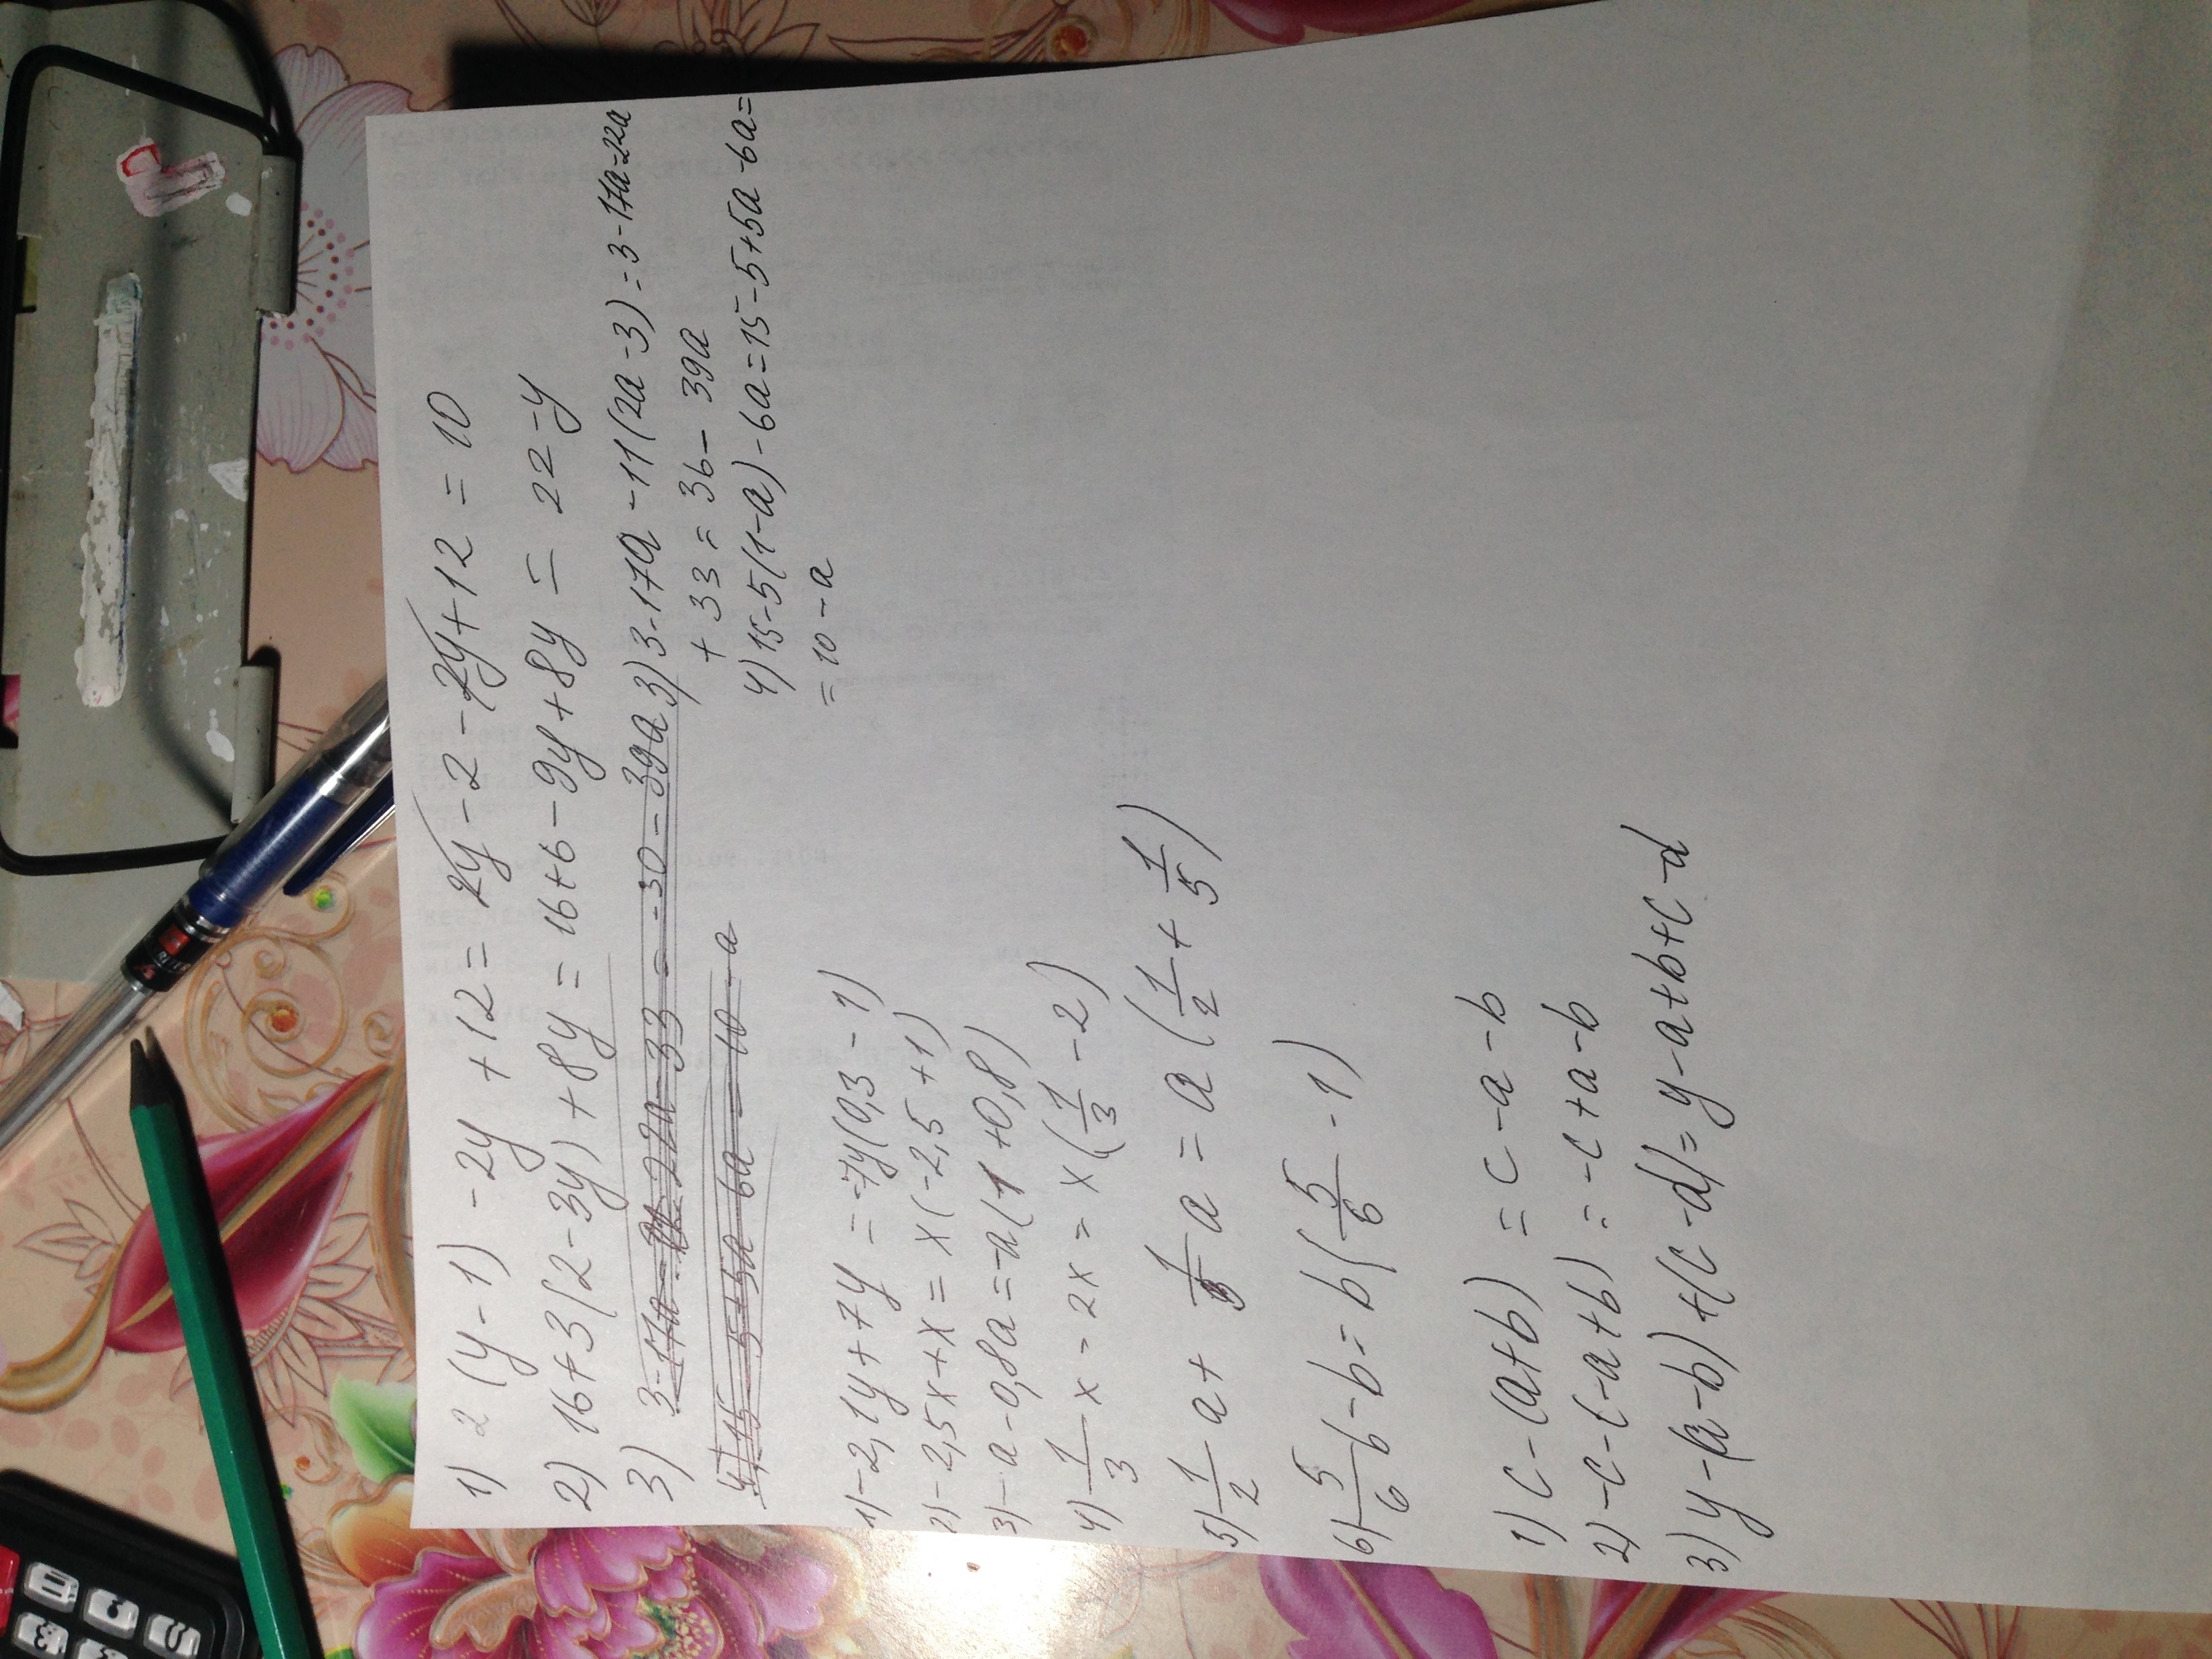 1) 2(y-1) -2y +12 = 2y -2 -2y +12 = 10
2) 16+3(2-3y)+8y = 16+6-9y+8y = 22-y
3) 3-17a-11(2a-3)=3-17a-22a
+33=36-39a
4) 15-5(1-a)-6a=15-5+5a-6a=
=10-a
3)
1) -2,1y+7y = -7y(0,3-1)
2) -2,5x+x = x(-2,5+1)
3) -a-0,8a=-a(1+0,8)
4) \frac{1}{3}x-2x = x(\frac{1}{3}-2)
5) \frac{1}{2}a+\frac{1}{5}a = a(\frac{1}{2}+\frac{1}{5})
6) \frac{5}{6}b-b=b(\frac{5}{6}-1)
1) c-(a+b) = c-a-b
2) -c-(-a+b) = -c+a-b
3) y-(a-b)+(c-d)=y-a+b+c-d